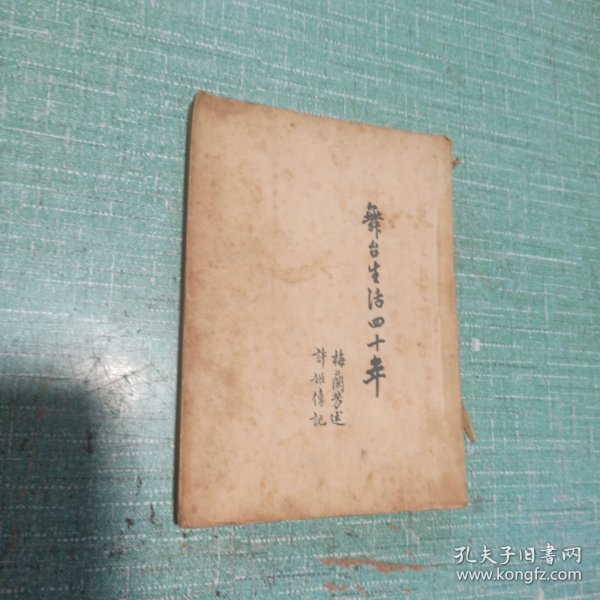 舞台生活四十年
梅蘭芳述
許姬傳記
孔夫子旧书网
www.kongfz.com